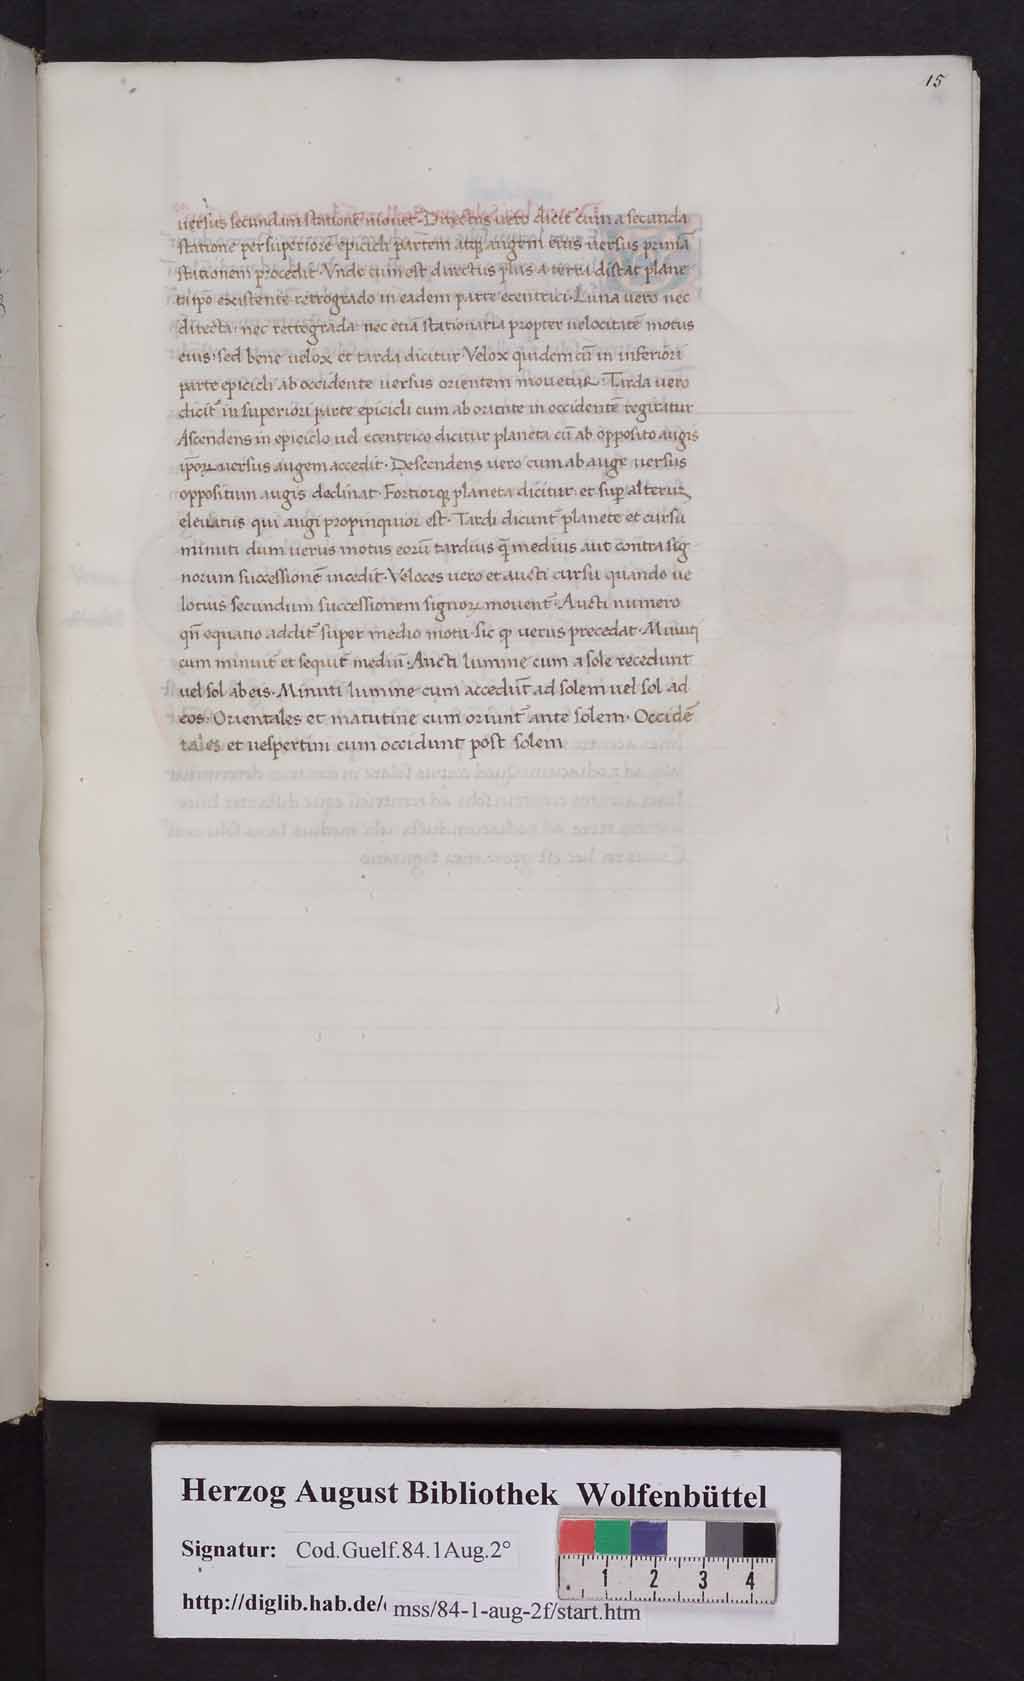 15
uersus secundam stationē mouet̄. Directus uero dicit̄ cum a secunda
statione per superiorē epicicli partem atq; augem eius uersus primā
stationem procedit. Vnde cum est directus plus a terra distat plane
ta ip̄o existente retrogrado in eadem parte ecentrici. Luna uero nec
directa. nec retrograda. nec etiā stationaria propter uelocitatē motus
eius. sed bene uelox et tarda dicitur Velox quidem cū in inferiori
parte epicicli ab occidente uersus orientem mouetur. Tarda uero
dicit̄ in superiori parte epicicli cum ab oriente in occidentē regiratur
Ascendens in epiciclo uel ecentrico dicitur planeta cū ab opposito augis
ip̄oꝝ uersus augem accedit. Descendens uero cum ab auge uersus
oppositum augis declinat. Fortiorq; planeta dicitur. et suꝑ alterum
eleuatus qui augi propinquior est. Tardi dicunt̄ planete et cursu
minuti dum uerus motus eorū tardius q̄ medius aut contra sig
norum successionē incedit. Veloces uero et aucti cursu quando ue
lotius secundum successionem signoꝝ mouent̄. Aucti numero
qn̄ equatio addit̄ super medio motu. sic ꝙ uerus precedat. Minuti
cum minuit̄ et sequit̄ mediū. Aucti lumine cum a sole recedunt
uel sol ab eis. Minuti lumine cum accedūt ad solem uel sol ad
eos. Orientales et matutine cum oriunt̄ ante solem. Occidē
tales et uespertini cum occidunt post solem
Herzog August Bibliothek Wolfenbüttel
Signatur: Cod.Guelf.84.1Aug.2°
http://diglib.hab.de/ mss/84-1-aug-2f/start.htm
1 2 3 4